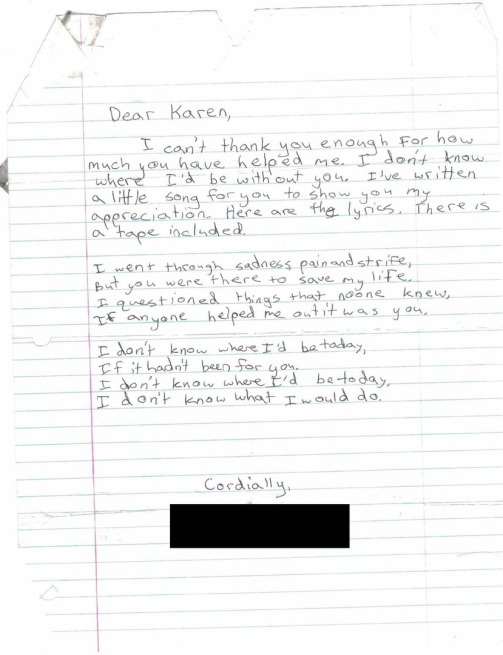 Dear Karen,
I can't thank you enough for how
much you have helped me. I don't know
where I'd be without you. I've written
a little song for you to show you my
appreciation. Here are the lyrics. There is
a tape included.
I went through sadness, pain and strife,
But you were there to save my life.
I questioned things that noone knew,
If anyone helped me out it was you.
I don't know where I'd be today,
If it hadn't been for you.
I don't know where I'd be today,
I don't know what I would do.
Cordially,